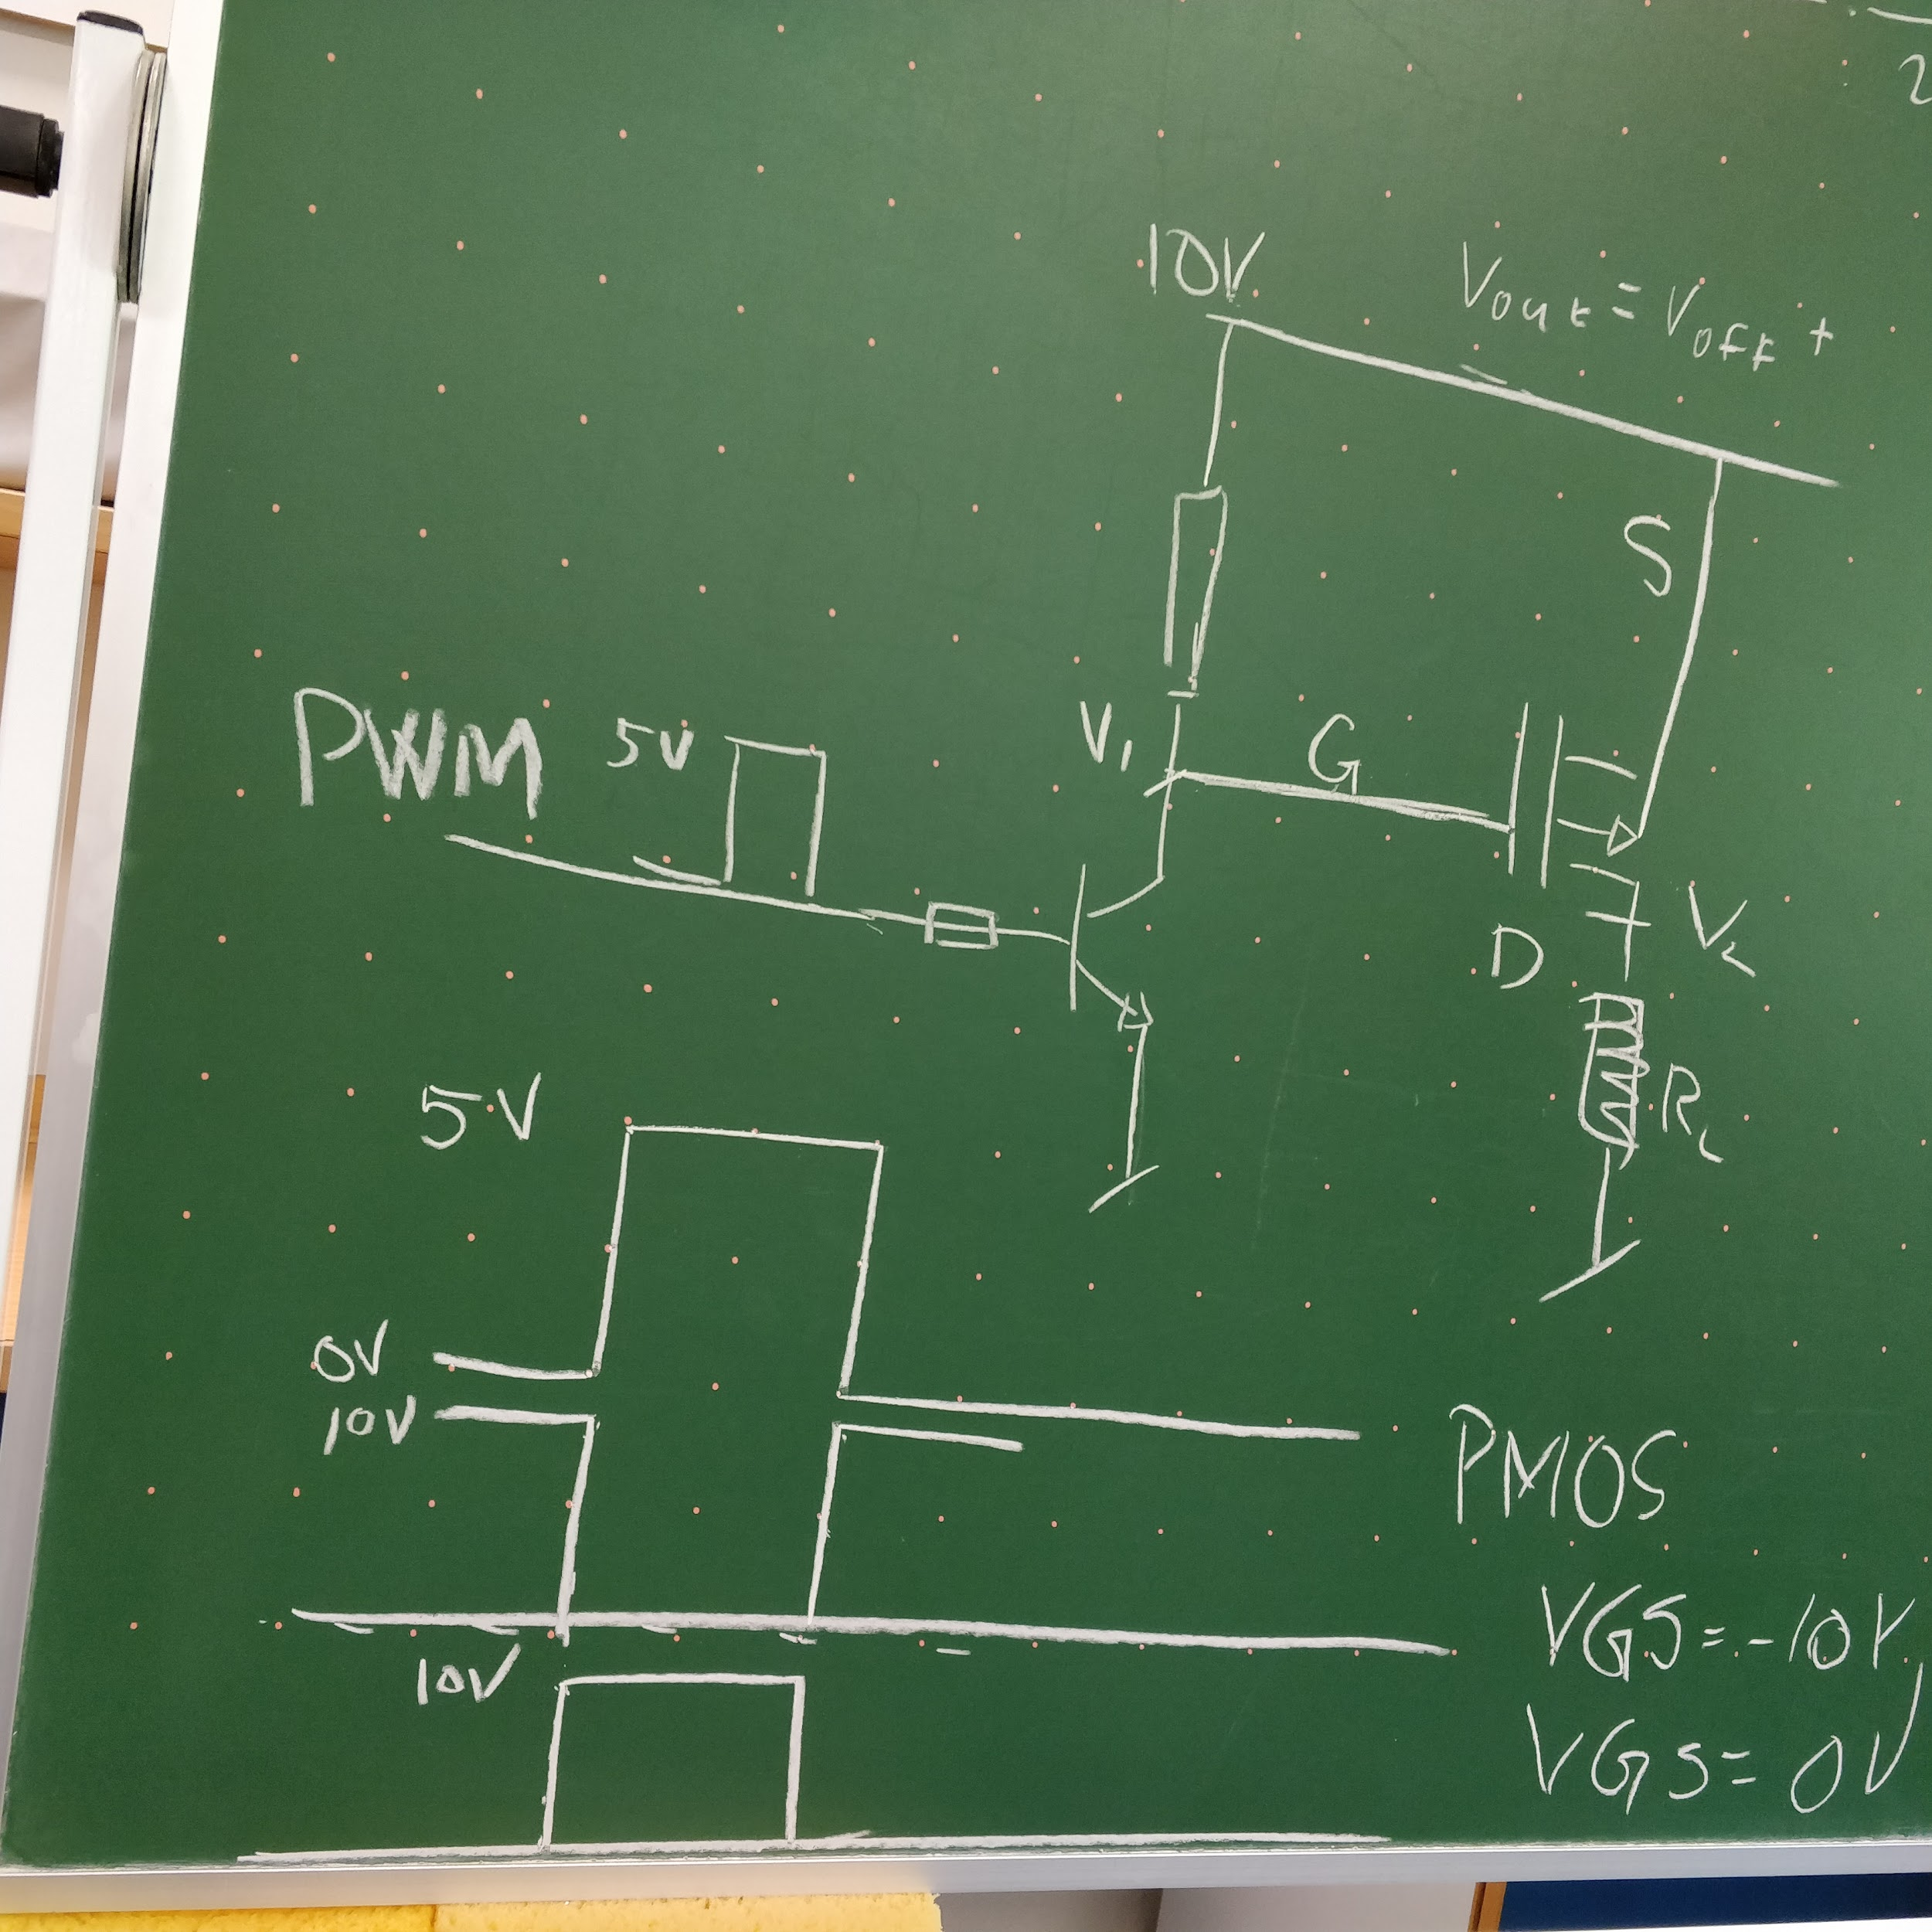 2
10V
Vout = Voff +
S
PWM
5V
V1
G
D
VL
RL
5V
0V
10V
10V
PMOS
VGS = -10V,
VGS = 0V